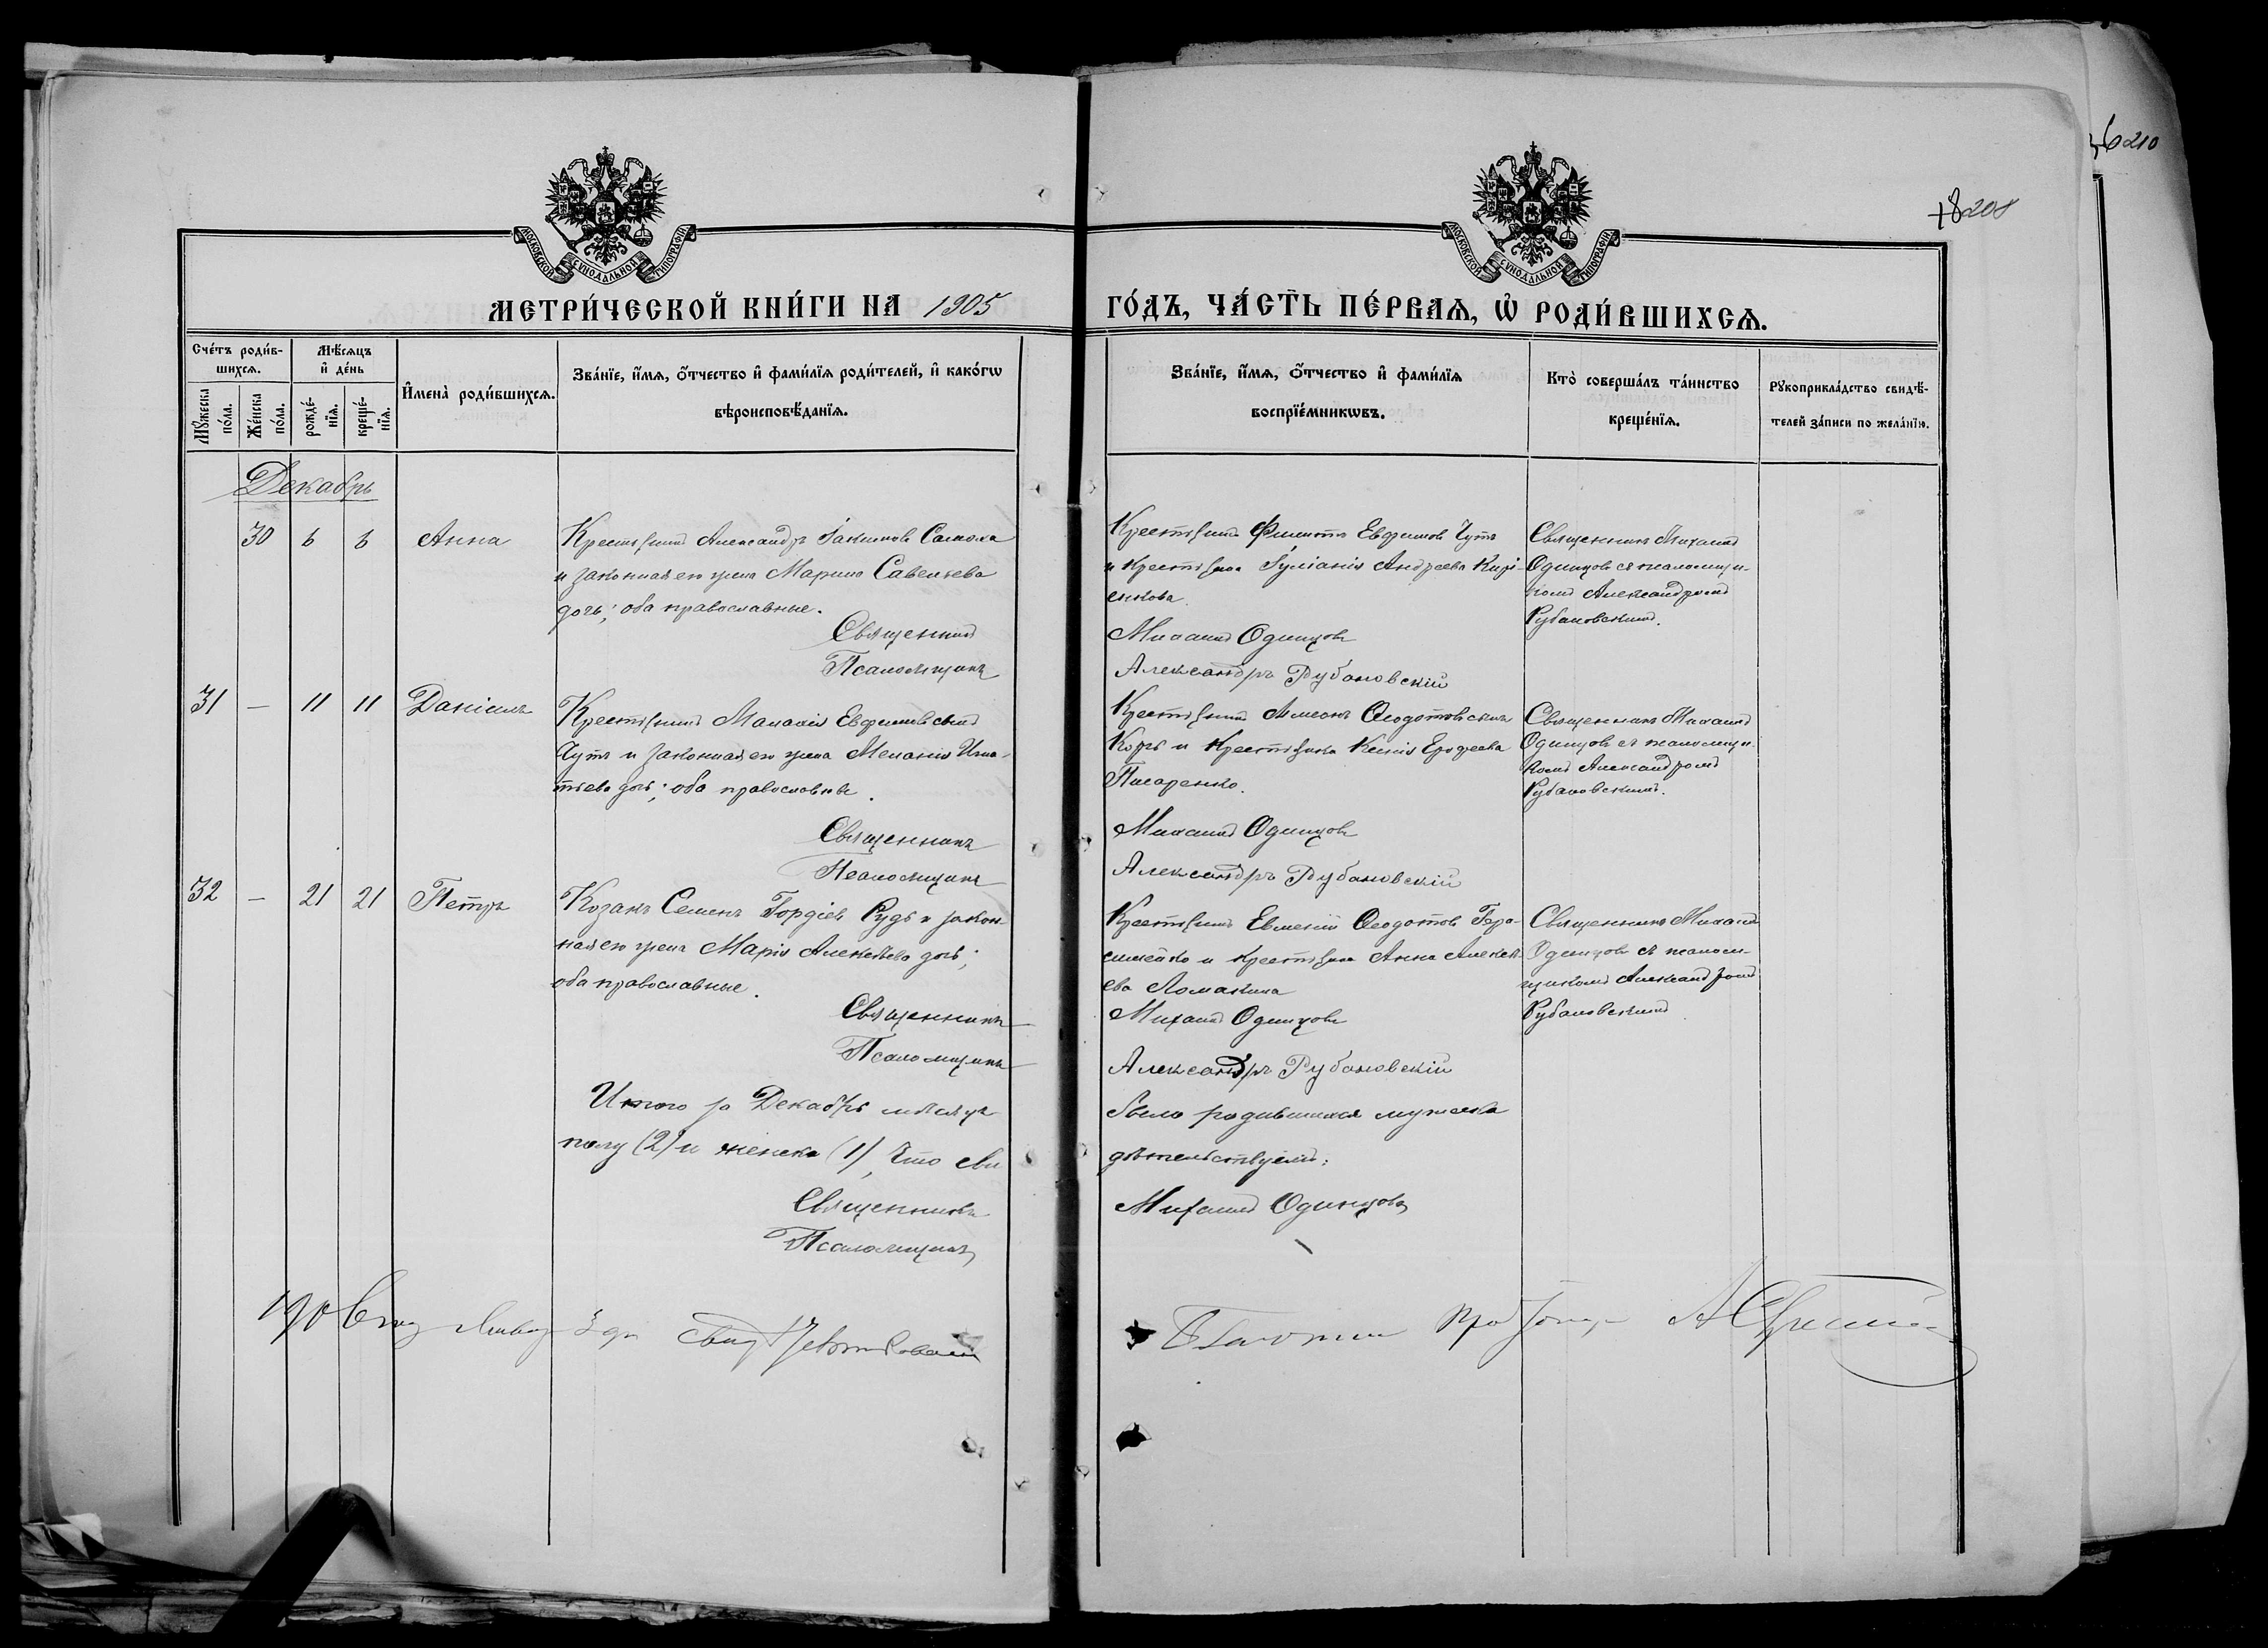 6 210
18 208
МОСКОВСКОЙ СѴНОДАЛЬНОЙ ТИПОГРАФІИ
МОСКОВСКОЙ СѴНОДАЛЬНОЙ ТИПОГРАФІИ
МЕТРИ́ЧЕСКОЙ КНИ́ГИ НА 1905
ГО́ДЪ, ЧА́СТЬ ПЕ́РВАѦ, Ѡ РОДИ́ВШИХСѦ.
Сче́тъ роди́в-
шихсѧ.
Мꙋ́жеска по́ла.
Же́нска по́ла.
Мѣ́сѧцъ и де́нь
рожде́-нїѧ.
креще́-нїѧ.
И҆мена̀ роди́вшихсѧ.
Зва́нїе, и҆́мѧ, ѻ҆́тчество и҆ фами́лїѧ роди́телей, и҆ како́гѡ
вѣроисповѣ́данїѧ.
Зва́нїе, и҆́мѧ, ѻ҆́тчество и҆ фами́лїѧ
воспрїе́мникѡвъ.
Кто̀ соверша́лъ та́инство
креще́нїѧ.
Рꙋкоприкла́дство свидѣ́-
телей за́писи по жела́нїю.
Декабрь
30 6 6 Анна
Крестьянинъ Александръ Іакимовъ Самоха
и законная его жена Марина Савельева
дочь; оба православные.
Священникъ
Псаломщикъ
Крестьянинъ Филиппъ Евфимовъ Чутъ
и крестьянка Іуліанія Андреева Кирі-
енкова.
Михаилъ Одинцовъ
Александръ Рубановскій
Священникъ Михаилъ
Одинцовъ съ псаломщи-
комъ Александромъ
Рубановскимъ.
31 — 11 11 Даніилъ
Крестьянинъ Малахія Евфимовъ сынъ
Чутъ и законная его жена Меланія Игна-
тьева дочь; оба православные.
Священникъ
Псаломщикъ
Крестьянинъ Симеонъ Ѳеодотовъ сынъ
Коржъ и крестьянка Ксенія Ерофеева
Писаренко.
Михаилъ Одинцовъ
Александръ Рубановскій
Священникъ Михаилъ
Одинцовъ съ псаломщи-
комъ Александромъ
Рубановскимъ.
32 — 21 21 Петръ
Козакъ Семенъ Гордіевъ Рудь и закон-
ная его жена Марія Алексѣева дочь;
оба православные.
Священникъ
Псаломщикъ
Крестьянинъ Евменій Ѳеодотовъ Гера-
сименко и крестьянка Анна Алексѣ-
ева Ломакина
Михаилъ Одинцовъ
Александръ Рубановскій
Священникъ Михаилъ
Одинцовъ съ псалом-
щикомъ Александромъ
Рубановскимъ.
Итого за Декабрь мѣсяцъ
было родившихся мужеска
полу (2) и женска (1), Что сви
дѣтельствуемъ:
Священникъ
Михаилъ Одинцовъ
Псаломщикъ
190 6 года Января 3 дня свидѣтельствовалъ
Благочин